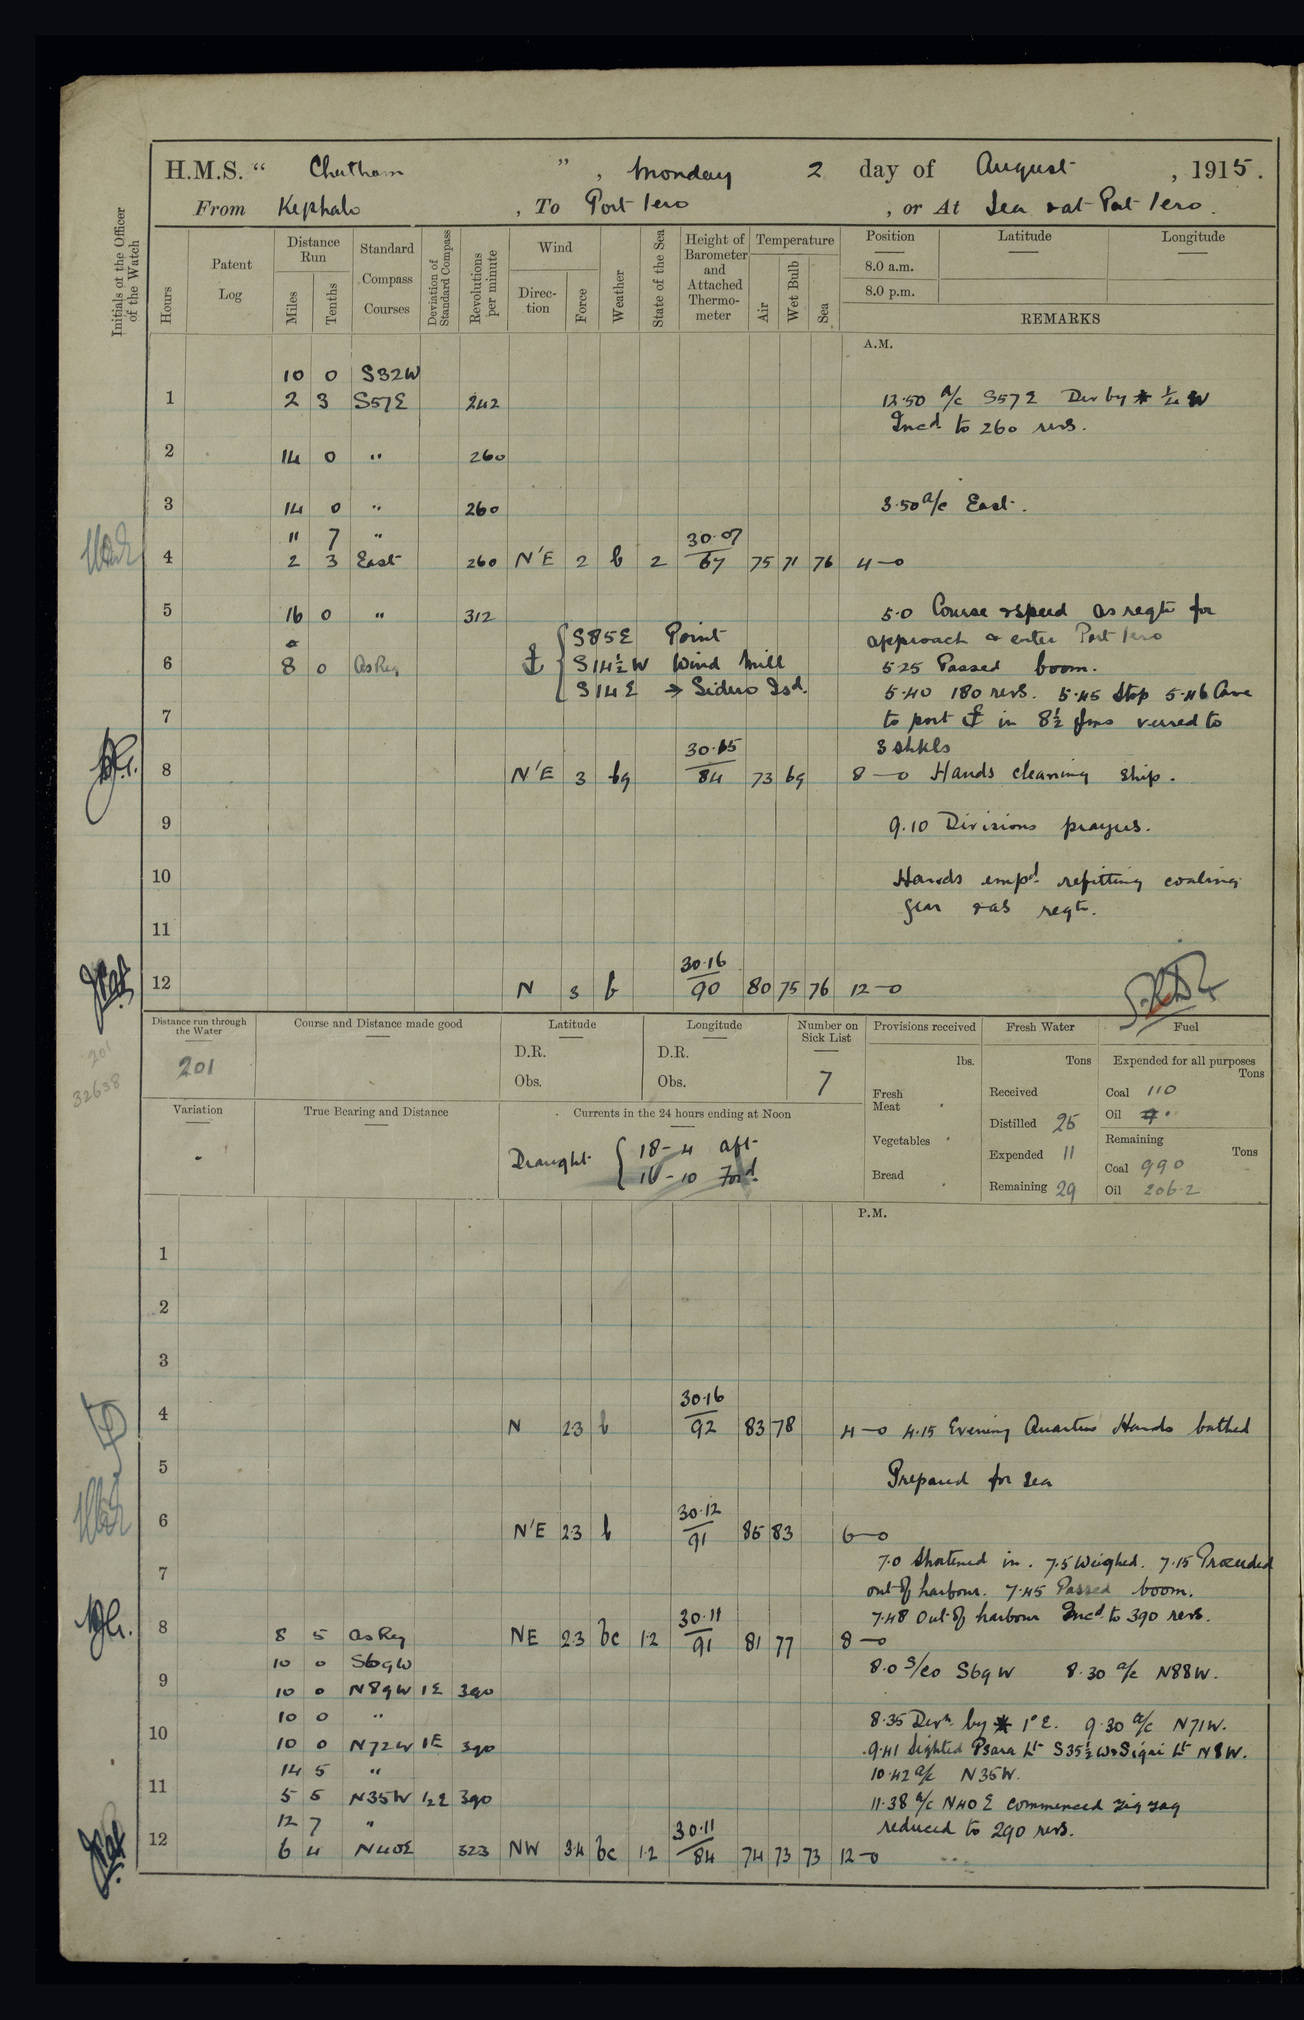 H.M.S. “ Chatham ”, Monday 2 day of August, 1915.
From Kephalo, To Port Iero, or At Sea & at Port Iero.
Initials of the Officer of the Watch
Hours
Patent Log
Distance Run
Miles
Tenths
Standard Compass Courses
Deviation of Standard Compass
Revolutions per minute
Wind
Direction
Force
Weather
State of the Sea
Height of Barometer and Attached Thermometer
Temperature
Air
Wet Bulb
Sea
Position
8.0 a.m.
8.0 p.m.
Latitude
Longitude
REMARKS
A.M.
10 0 S32W
1 2 3 S57E 242 12.50 a/c S57E Dev by * ¼ W
Incd to 260 revs.
2 14 0 " 260
3 14 0 " 260 3.50 a/c East.
11 7 " 30.07
4 2 3 East 260 N'E 2 b 2 67 75 71 76 4—0
5 16 0 " 312 5.0 Course & speed as reqte for
S85E Point approach & enter Port Iero
6 8 0 As Req S14½W Wind Mill 5.25 Passed boom.
S14E → Sidero Isd. 5.40 180 revs. 5.45 Stop 5.46 Came
7 to port ⚓ in 8½ fms veered to
30.15 3 shkls
8 N'E 3 bg 84 73 69 8—0 Hands cleaning ship.
9 9.10 Divisions prayers.
10 Hands empd refitting coaling
gear & as reqte.
11
30.16
12 N 3 b 90 80 75 76 12—0
Distance run through the Water
201
201
32638
Course and Distance made good
Latitude
D.R.
Obs.
Longitude
D.R.
Obs.
Number on Sick List
7
Provisions received
lbs.
Fresh Meat
Vegetables
Bread
Fresh Water
Tons
Received
Distilled 25
Expended 11
Remaining 29
Fuel
Expended for all purposes
Tons
Coal 110
Oil
Remaining
Tons
Coal 990
Oil 206.2
Variation
True Bearing and Distance
Currents in the 24 hours ending at Noon
Draught 18-4 aft
16-10 Ford
P.M.
1
2
3
30.16
4 N 2.3 b 92 83 78 4—0 4.15 Evening Quarters Hands bathed
5 Prepared for sea
30.12
6 N'E 2.3 b 91 85 83 6—0
7.0 Shortened in. 7.5 Weighed. 7.15 Proceeded
7 out of harbour. 7.45 Passed boom.
30.11 7.48 Out of harbour Incd to 390 revs.
8 8 5 as Req NE 2.3 bc 1.2 91 81 77 8—0
10 0 S69W 8.0 s/co S69W 8.30 a/c N88W.
9 10 0 N89W 1E 390
10 0 " 8.35 Devn by * 1°E. 9.30 a/c N71W.
10 10 0 N72W 1E 390 9.41 Sighted Psara Lt S35½W & Sigri Lt N8W.
14 5 " 10.42 a/c N35W.
11 5 5 N35W ½E 390 11.38 a/c N40E commenced zig zag
12 7 " 30.11 reduced to 290 revs.
12 6 4 N40E 323 NW 3.4 bc 1.2 84 74 73 73 12—0